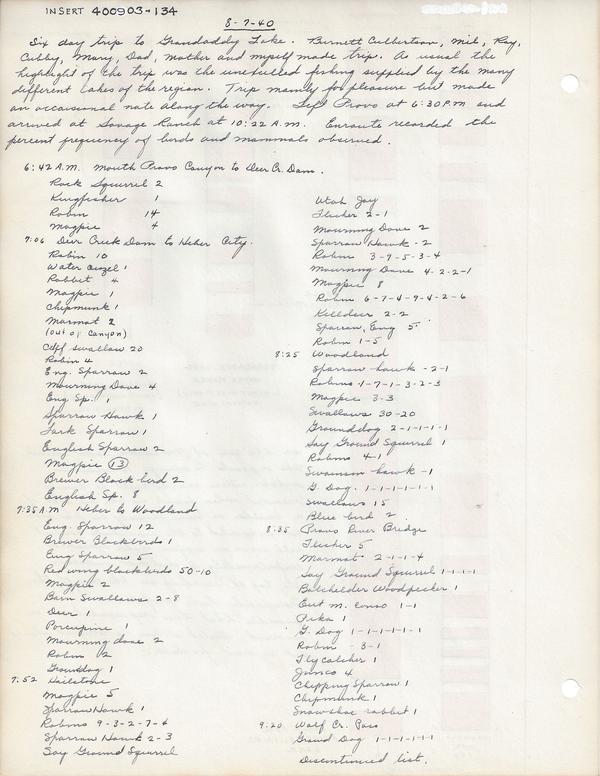 INSERT 400903-134
8-7-40
Six day trip to Grandaddy Lake. Burnett Culbertson, Mil, Ray,
Cubby, Mary, Dad, Mother and myself made trip. As usual the
highlight of the trip was the unexcelled fishing supplied by the many
different lakes of the region. Trip mainly for pleasure but made
an occassional note along the way. Left Provo at 6:30 P.M and
arrived at Savage Ranch at 10:22 A.M. Enroute recorded the
percent frequency of birds and mammals observed.
6:42 A.M. Mouth Provo Canyon to Deer Cr. Dam.
Rock Squirrel 2
Kingfisher 1
Robin 14
Magpie 4
7:06 Deer Creek Dam to Heber City.
Robin 10
Water Ouzel 1
Rabbit 4
Magpie 1
Chipmunk 1
Marmot 2
(out of Canyon)
Cliff swallow 20
Robin 4
Eng. Sparrow 2
Mourning Dove 4
Eng Sp. 1
Sparrow Hawk 1
Lark Sparrow 1
English Sparrow 2
Magpie 13
Brewer Black bird 2
English Sp. 8
7:35 A.M Heber to Woodland
Eng. Sparrow 12
Brewer Blackbirds 1
Eng Sparrow 5
Redwing blackbirds 50-10
Magpie 2
Barn Swallows 2-8
Deer 1
Porcupine 1
Mourning dove 2
Robin 2
Grounddog 1
7:52 Hailstone
Magpie 5
Sparrow Hawk 1
Robins 9-3-2-7-4
Sparrow Hawk 2-3
Say Ground Squirrel
Utah Jay
Flicker 2-1
Mourning Dove 2
Sparrow Hawk - 2
Robin 3-9-5-3-4
Mourning Dove 4-2-2-1
Magpie 8
Robin 6-7-4-9-4-2-6
Killdeer 2-2
Sparrow, Eng 5
Robin 1-5
8:25 Woodland
Sparrow hawk -2-1
Robins 1-7-1-3-2-3
Magpie 3-3
Swallows 30-20
Grounddog 2-1-1-1-1
Say Ground Squirrel 1
Robins 4-1
Swanson hawk -1
G. Dog. 1-1-1-1-1-1
Swallows 15
Blue bird 2
8:35 Provo River Bridge
Flicker 5
Marmot 2-1-1-4
Say Ground Squirrel 1-1-1-1
Batchelder Woodpecker 1
Eut m. 1-1
Pika 1
G. Dog 1-1-1-1-1-1
Robin -3-1
Flycatcher 1
Junco 4
Chipping Sparrow 1
Chipmunk 1
Snowshoe rabbit 1
9:20 Wolf Cr. Pass
Ground Dog 1-1-1-1-1-1
Discontinued list.